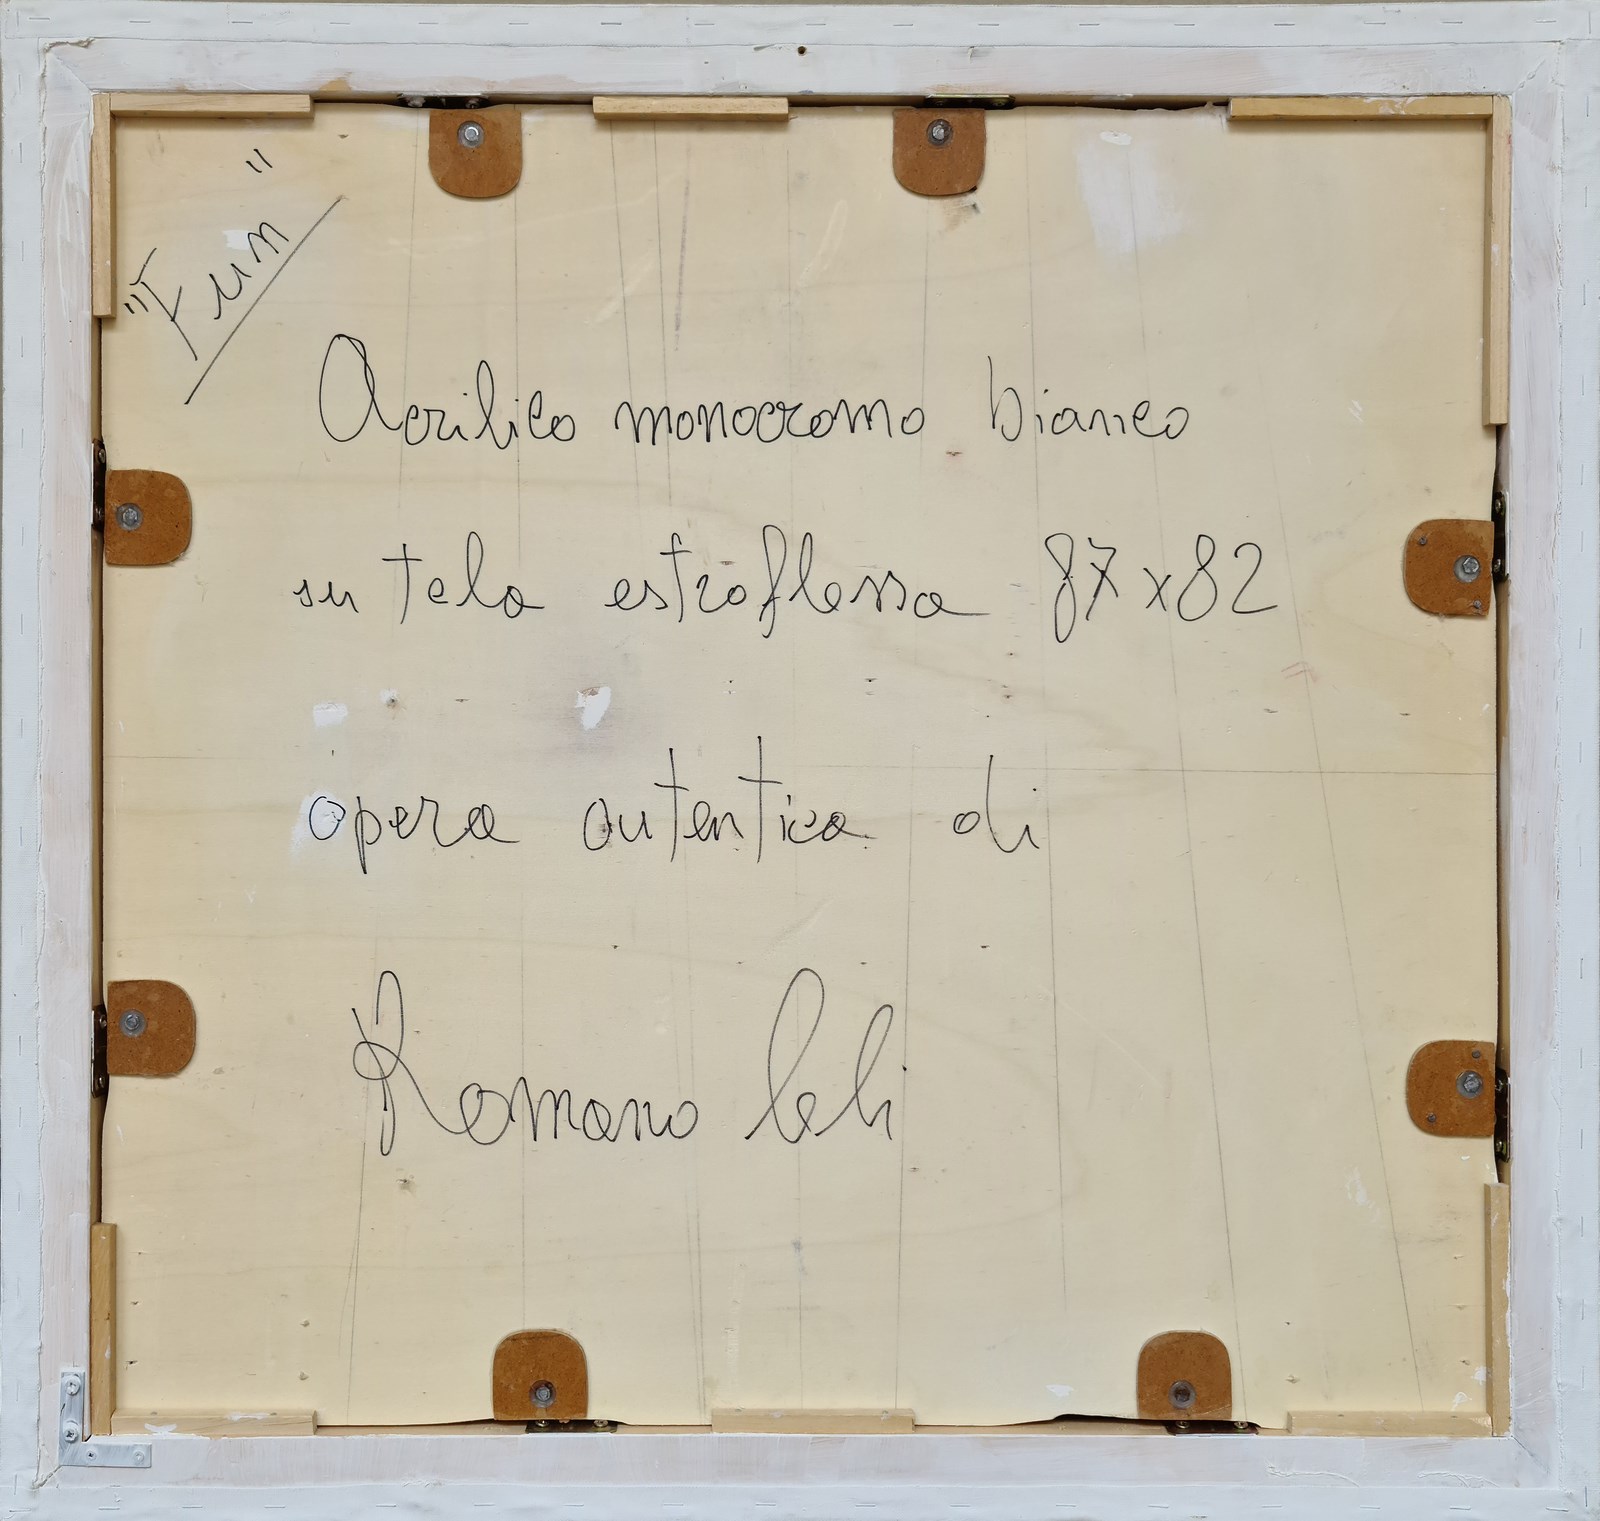 "Fun"
Acrilico monocromo bianco
su tela estroflessa 87x82
opera autentica di
Romano